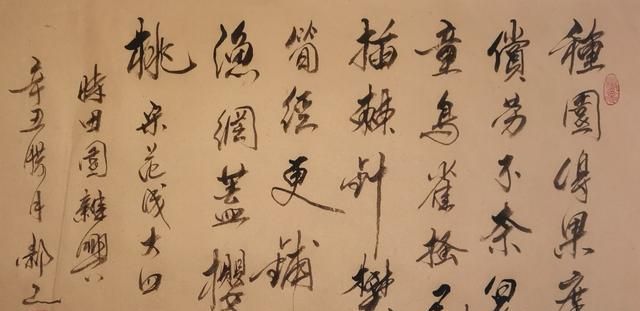 種園得果廑
償勞不奈兒
童鳥雀搔
插棘針樊
筍徑更鋪
漁網蓋櫻
桃 宋范成大四
時田園雜興
辛丑臘月郝